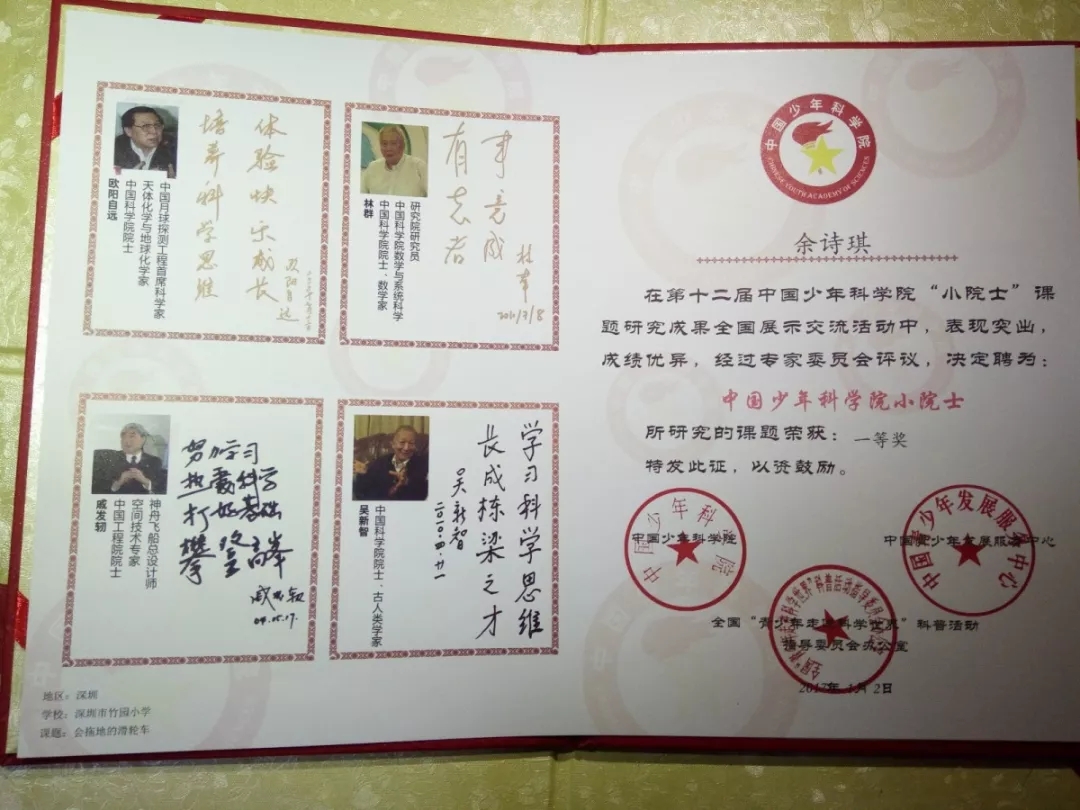 体验快乐成长
培养科学思维
欧阳自远
中国月球探测工程首席科学家
天体化学与地球化学家
中国科学院院士
欧阳自远
有志者
事竟成
林群
2011/3/8
研究院研究员
中国科学院数学与系统科学
中国科学院院士、数学家
林群
努力学习
热爱科学
打好基础
攀登高峰
戚发轫
04.05.17.
神舟飞船总设计师
空间技术专家
中国工程院院士
戚发轫
学习科学思维
长成栋梁之才
吴新智
二〇一〇·四·廿一
中国科学院院士、古人类学家
吴新智
地区：深圳
学校：深圳市竹园小学
课题：会拖地的滑轮车
中国少年科学院
CHINESE YOUTH ACADEMY OF SCIENCES
余诗琪
在第十二届中国少年科学院“小院士”课
题研究成果全国展示交流活动中，表现突出，
成绩优异，经过专家委员会评议，决定聘为：
中国少年科学院小院士
所研究的课题荣获：一等奖
特发此证，以资鼓励。
中国少年科学院
中国少年科学院
中国青少年发展服务中心
中国青少年发展服务中心
全国“青少年走进科学世界”科普活动
指导委员会办公室
2017年1月2日